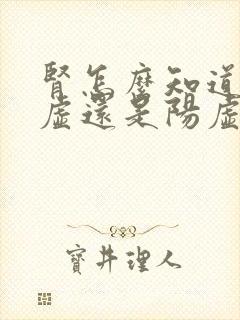 腎怎麼知道
虛還是陽虛
寶井理人